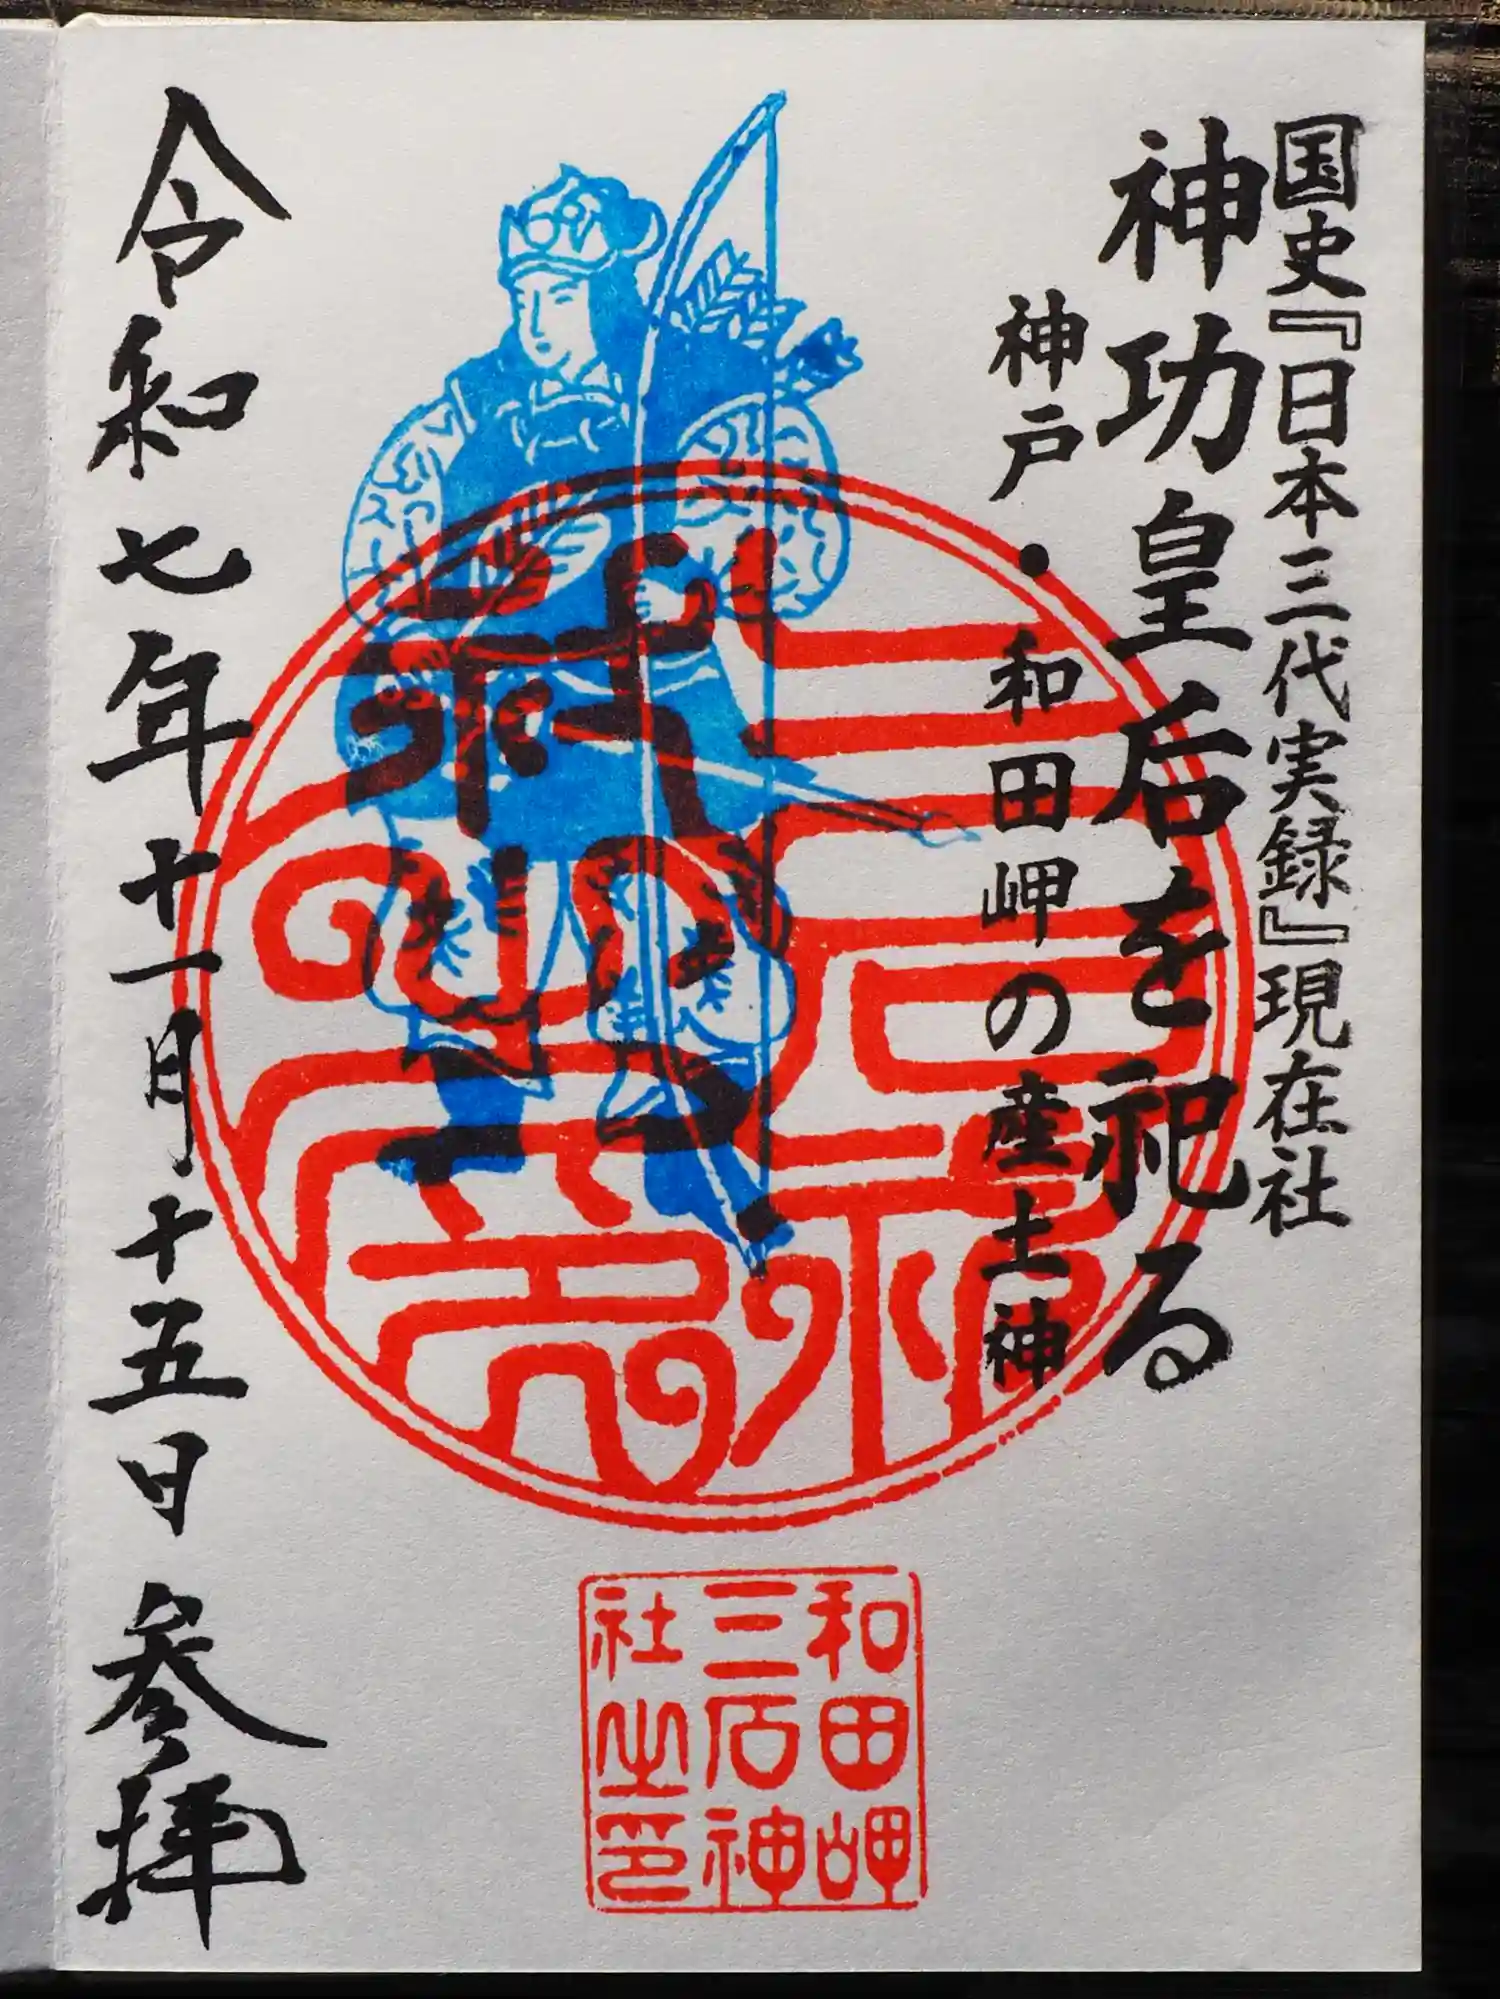 国史『日本三代実録』現在社
神功皇后を祀る
神戸・和田岬の産土神
令和七年十一月十五日参拝
和田岬
三石神
社之印